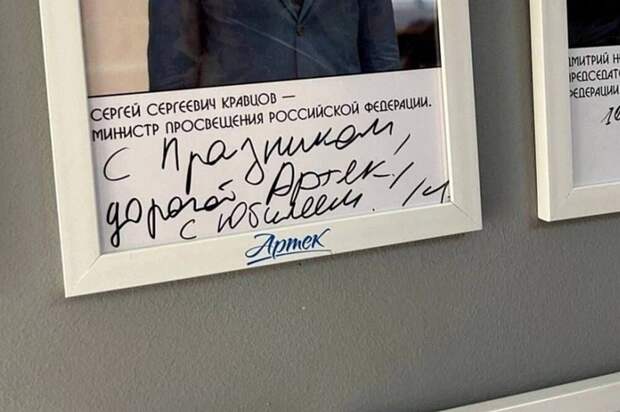 СЕРГЕЙ СЕРГЕЕВИЧ КРАВЦОВ —
МИНИСТР ПРОСВЕЩЕНИЯ РОССИЙСКОЙ ФЕДЕРАЦИИ.
С Празником,
дорогой Артек!
с Юбилеем.
Артек
ДМИТРИЙ
ПРЕДСЕДАТ
ФЕДЕРАЦИИ